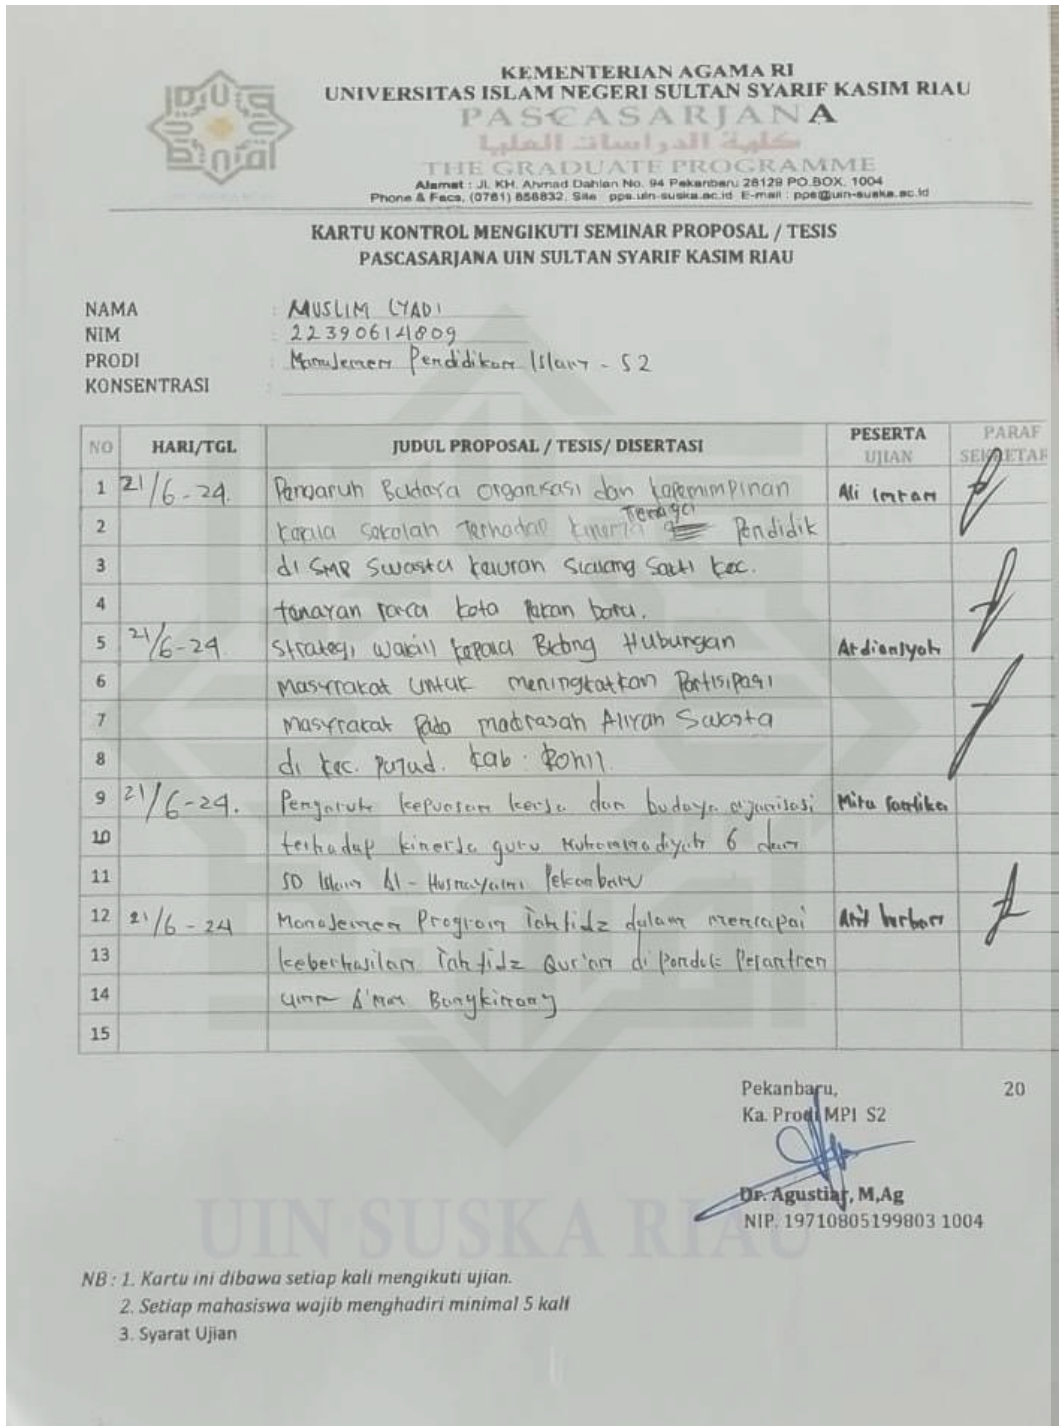 KEMENTERIAN AGAMA RI
UNIVERSITAS ISLAM NEGERI SULTAN SYARIF KASIM RIAU
PASCASARJANA
كلية الدراسات العليا
THE GRADUATE PROGRAMME
Alamat : Jl. KH. Ahmad Dahlan No. 94 Pekanbaru 28129 PO.BOX. 1004
Phone & Facs, (0761) 858832, Site : pps.uin-suska.ac.id E-mail : pps@uin-suska.ac.id
KARTU KONTROL MENGIKUTI SEMINAR PROPOSAL / TESIS
PASCASARJANA UIN SULTAN SYARIF KASIM RIAU
NAMA : MUSLIM
NIM : 22390614809
PRODI : Manajemen Pendidikan Islam - S2
KONSENTRASI :
NO HARI/TGL JUDUL PROPOSAL / TESIS/ DISERTASI PESERTA UJIAN PARAF SEKRETAR
1 21/6-24. Pengaruh Budaya organisasi dan kepemimpinan Ali Imran
2 kepala sekolah Terhadap kinerja Tenaga Pendidik
3 di SMP Swasta Sialang Sakti kec.
4 tenayan raya kota Pekan baru.
5 21/6-24. Strategi wakil kepala Bidang Hubungan Ardiansyah
6 Masyrakat untuk meningkatkan Partisipasi
7 masyrakat pada madrasah Aliyah Swasta
8 di kec. Pujud. kab. Rohil.
9 21/6-24. Pengaruh kepuasan kerja dan budaya organisasi Mita
10 terhadap kinerja guru Muhammadiyah 6 dan
11 SD Islam Al- Pekanbaru
12 21/6-24 Manajemen Program Tahfidz dalam mencapai
13 keberhasilan Tahfidz Qur'an di Pondok Pesantren
14 Bangkinang
15
Pekanbaru, 20
Ka. Prodi MPI S2
Dr. Agustiar, M,Ag
NIP. 19710805199803 1004
UIN SUSKA RIAU
NB : 1. Kartu ini dibawa setiap kali mengikuti ujian.
2. Setiap mahasiswa wajib menghadiri minimal 5 kali
3. Syarat Ujian